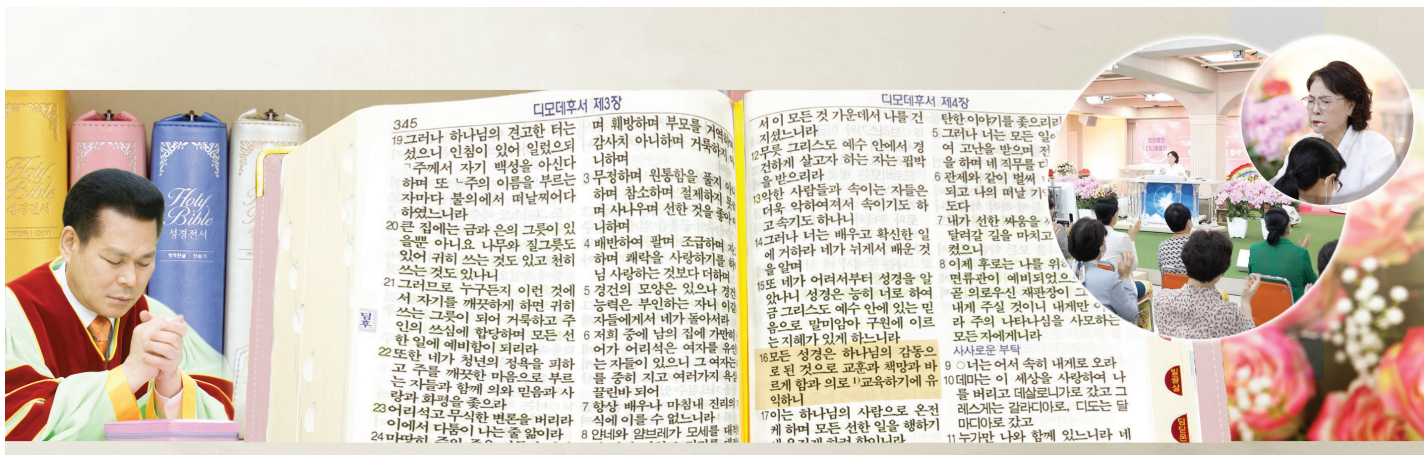 Holy
Bible
성경전서
Holy
Bible
성경전서
개역한글 | 찬송가
디모데후서 제3장
345
19 그러나 하나님의 견고한 터는
섰으니 인침이 있어 일렀으되
주께서 자기 백성을 아신다
하며 또 주의 이름을 부르는
자마다 불의에서 떠날찌어다
하였느니라
20 큰 집에는 금과 은의 그릇이 있
을뿐 아니요 나무와 질그릇도
있어 귀히 쓰는 것도 있고 천히
쓰는 것도 있나니
21 그러므로 누구든지 이런 것에
서 자기를 깨끗하게 하면 귀히
쓰는 그릇이 되어 거룩하고 주
인의 쓰심에 합당하며 모든 선
한 일에 예비함이 되리라
22 또한 네가 청년의 정욕을 피하
고 주를 깨끗한 마음으로 부르
는 자들과 함께 의와 믿음과 사
랑과 화평을 좇으라
23 어리석고 무식한 변론을 버리라
이에서 다툼이 나는 줄 앎이라
24 마땅히 주의
딤후
며 훼방하며 부모를
감사치 아니하며 거룩하지
니하며
3 무정하며 원통함을 풀지
하며 참소하며 절제하지
며 사나우며 선한 것을
니하며
4 배반하여 팔며 조급하며
하며 쾌락을 사랑하기를
님 사랑하는 것보다 더하며
5 경건의 모양은 있으나
능력은 부인하는 자니
자들에게서 네가 돌아서라
6 저희 중에 남의 집에
어가 어리석은 여자를
는 자들이 있으니 그 여자는
를 중히 지고 여러가지
끌린바 되어
7 항상 배우나 마침내
식에 이를 수 없느니라
8 얀네와 얌브레가 모세를
디모데후서 제4장
서 이 모든 것 가운데서 나를 건
지셨느니라
12 무릇 그리스도 예수 안에서 경
건하게 살고자 하는 자는 핍박
을 받으리라
13 악한 사람들과 속이는 자들은
더욱 악하여져서 속이기도 하
고 속기도 하나니
14 그러나 너는 배우고 확신한 일
에 거하라 네가 뉘게서 배운 것
을 알며
15 또 네가 어려서부터 성경을 알
았나니 성경은 능히 너로 하여
금 그리스도 예수 안에 있는 믿
음으로 말미암아 구원에 이르
는 지혜가 있게 하느니라
16 모든 성경은 하나님의 감동으
로 된 것으로 교훈과 책망과 바
르게 함과 의로 교육하기에 유
익하니
17 이는 하나님의 사람으로 온전
케 하며 모든 선한 일을 행하기
탄한 이야기를 좇으리라
5 그러나 너는 모든
여 고난을 받으며
을 하며 네 직무를
6 관제와 같이 벌써
되고 나의 떠날
도다
7 내가 선한 싸움을
달려갈 길을 마치고
켰으니
8 이제 후로는 나를
면류관이 예비되었으
곧 의로우신 재판장이 그
내게 주실 것이니 내게만
라 주의 나타나심을 사모하는
모든 자에게니라
사사로운 부탁
9 ○너는 어서 속히 내게로 오라
10 데마는 이 세상을 사랑하여 나
를 버리고 데살로니가로 갔고 그
레스게는 갈라디아로, 디도는 달
마디아로 갔고
11 누가만 나와 함께 있느니라 네